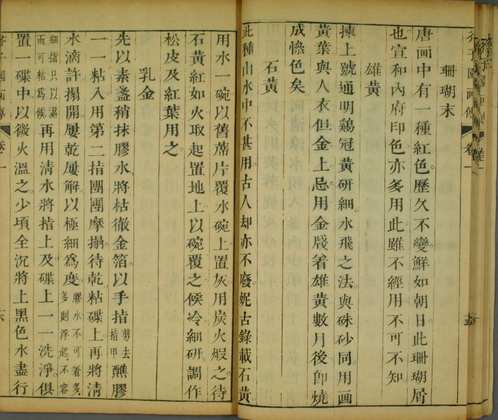 珊瑚末
唐画中有一種紅色歷久不變鮮如朝日此珊瑚屑
也宣和內府印色亦多用此雖不經用不可不知
雄黃
揀上號通明雞冠黃研細水飛之法與硃砂同用画
黃葉與人衣但金上忌用金牋着雄黃數月後即燒
成慘色矣
石黃
此種山水中不甚用古人却亦不廢妮古錄載石黃
用水一碗以舊蓆片覆水碗上置灰用炭火煅之待
石黃紅如火取起置地上以碗覆之候冷細研調作
松皮及紅葉用之
乳金
先以素盞稍抹膠水將枯徹金箔以手指剪去指甲醮膠
一一粘入用第二指團團摩搨待乾粘碟上再將清
水滴許搨開屢乾屢解以極細為度膠水不可著多多則浮起不容
細指只以濕而可粘為候再用清水將指上及碟上一一洗淨俱
置一碟中以微火溫之少頃金沉將上黑色水盡行
卷一